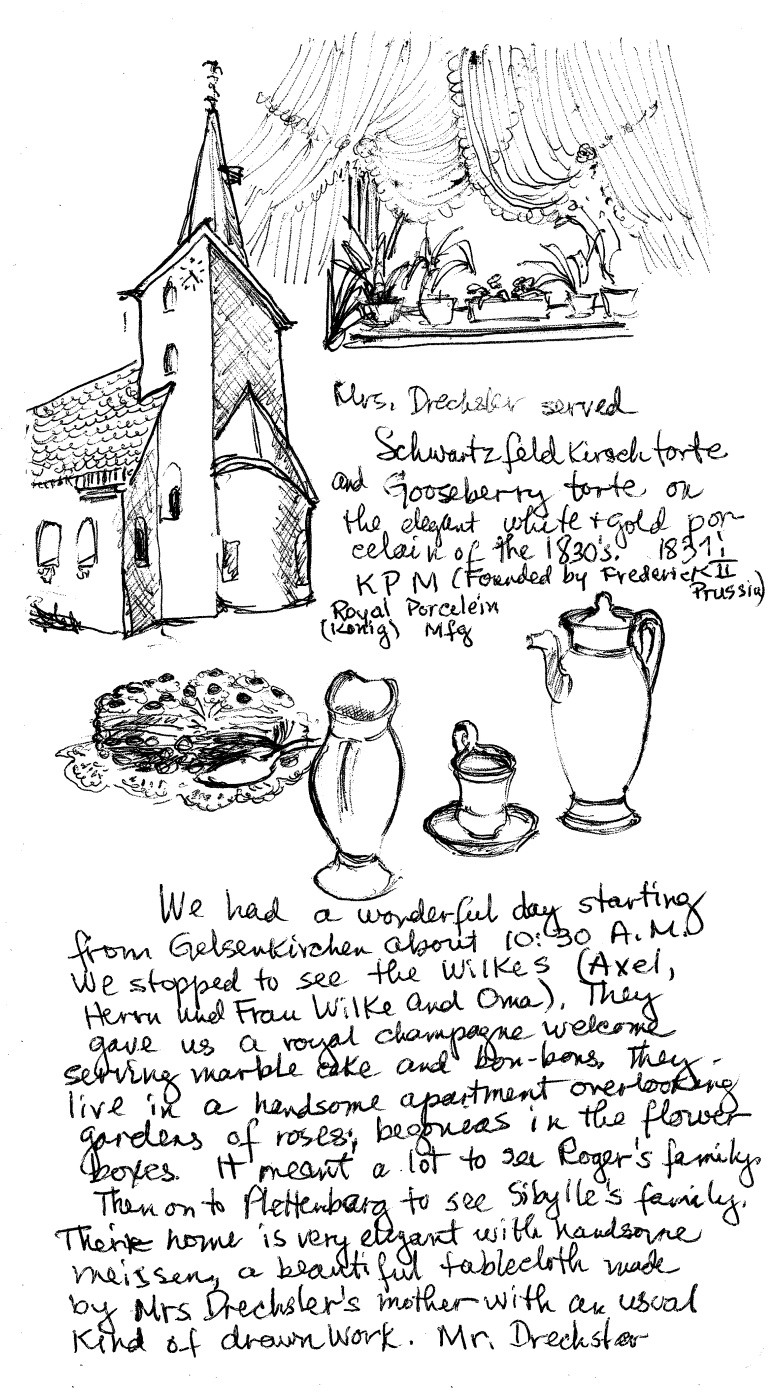 Mrs. Drechsler served
Schwartzfeld Kirsch torte
and Gooseberry torte on
the elegant white + gold por-
celain of the 1830's. 1831!
KPM (Founded by Frederick II
Prussia)
Royal Porcelein
(König) Mfg
We had a wonderful day starting
from Gelsenkirchen about 10:30 A.M.
We stopped to see the Wilkes (Axel,
Herrn und Frau Wilke and Oma). They
gave us a royal champagne welcome
serving marble cake and bon-bons. They
live in a handsome apartment overlooking
gardens of roses, begoneas in the flower
boxes. It meant a lot to see Roger's family.
Then on to Plettenbarg to see Sibylle's family.
Their home is very elegant with handsome
meissen, a beautiful tablecloth made
by Mrs Drechsler's mother with an usual
kind of drawn work. Mr. Drechsler